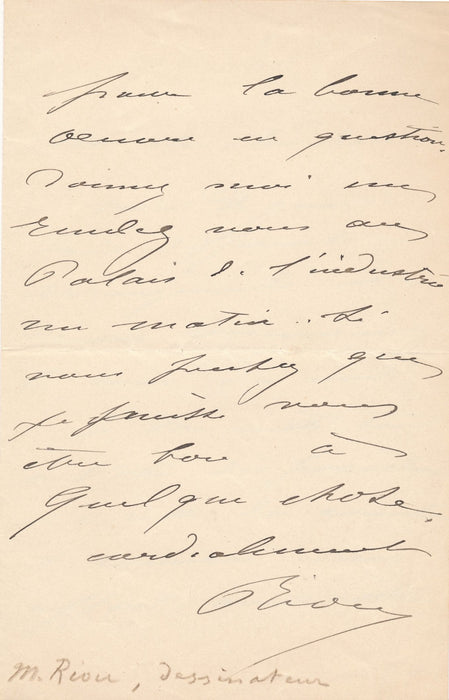 pour la bonne
oeuvre en question.
Donnez moi un
rendez vous au
Palais de l'industrie
un matin. Si
vous pensez que
je puisse vous
être bon à
quelque chose.
cordialement
Riou
M. Riou, Dessinateur